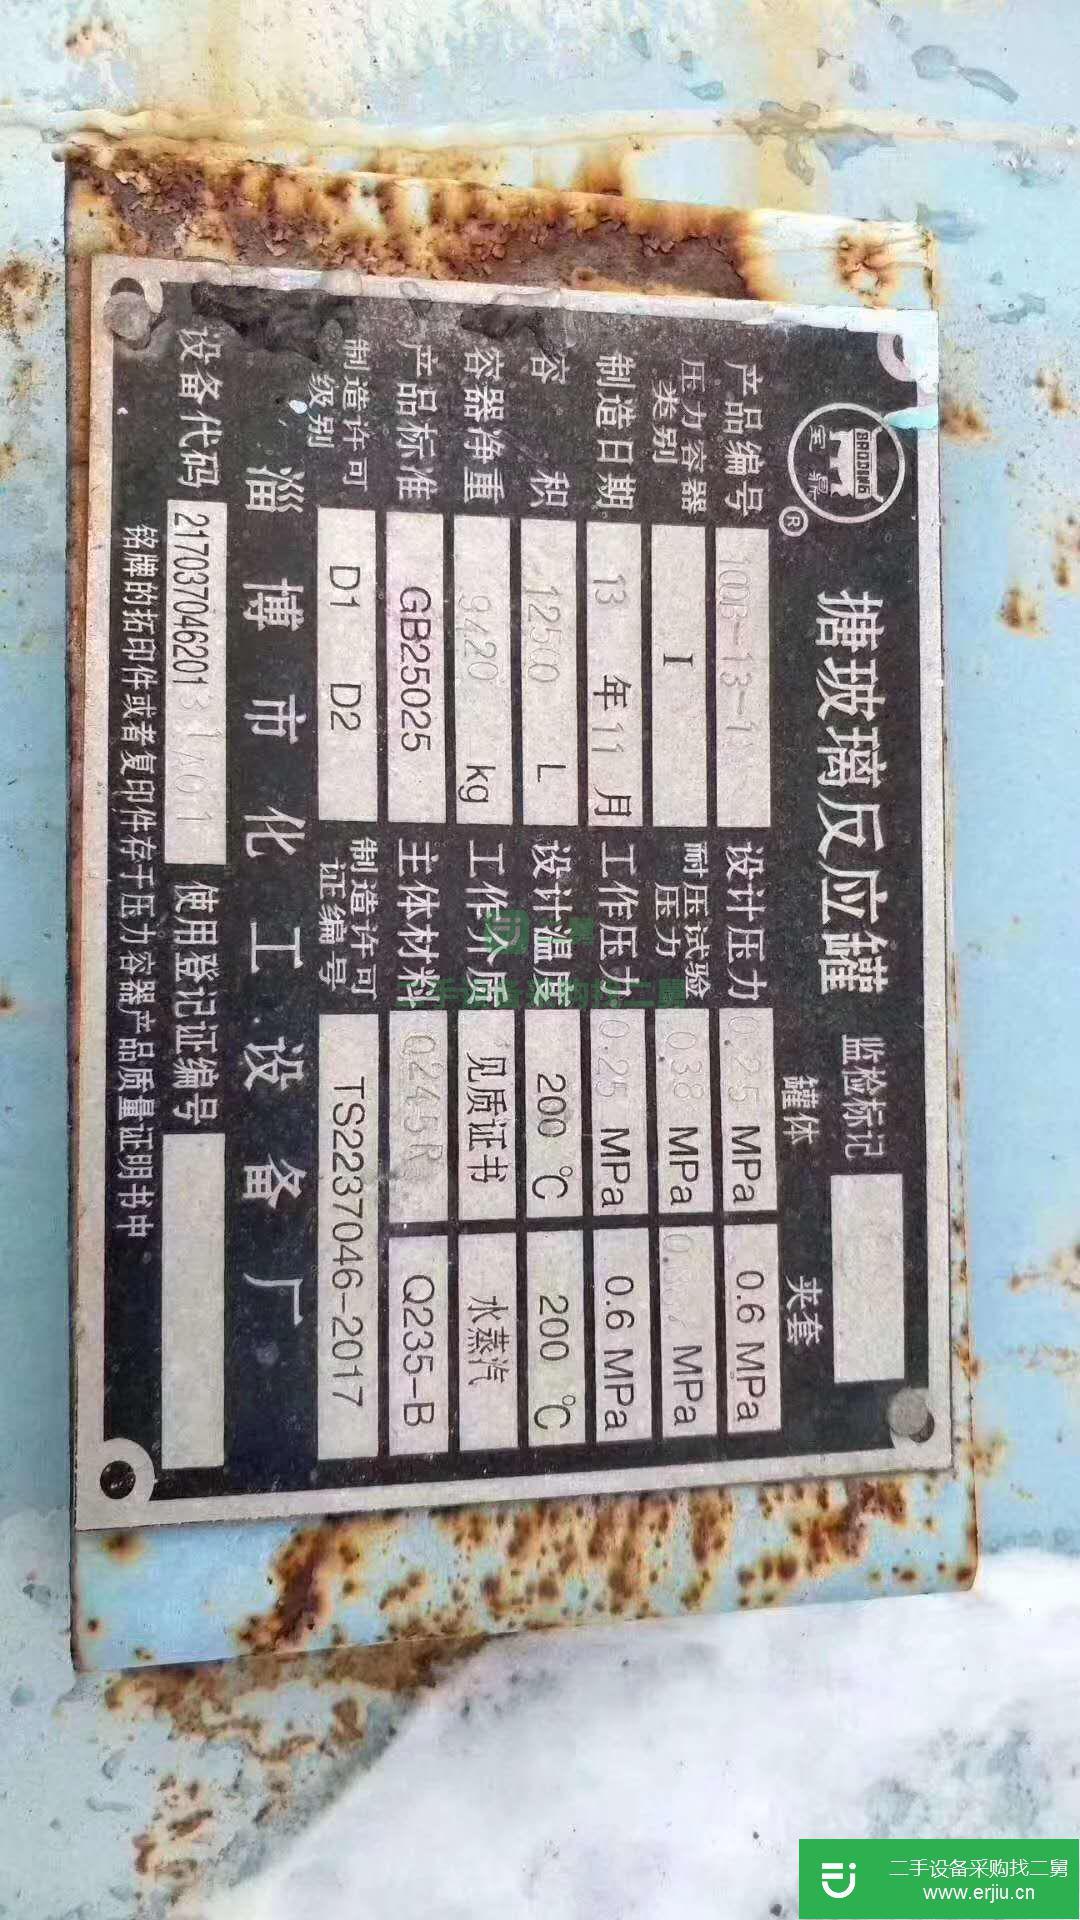 BAODING
宝鼎
®
搪玻璃反应罐
监检标记
罐体 夹套
产品编号 10B-13-1 设计压力 0.25 MPa 0.6 MPa
压力容器类别 I 耐压试验压力 .038 MPa MPa
制造日期 13 年 11 月 工作压力 0.25 MPa 0.6 MPa
容积 12500 L 设计温度 200 ℃ 200 ℃
容器净重 9420 kg 工作介质 见质证书 水蒸汽
产品标准 GB25025 主体材料 Q245R Q235-B
制造许可级别 D1 D2 制造许可证编号 TS2237046-2017
淄博市化工设备厂
设备代码 2170370462013 使用登记证编号
铭牌的拓印件或者复印件存于压力容器产品质量证明书中
二舅
二手设备采购找二舅
二手设备采购找二舅
www.erjiu.cn